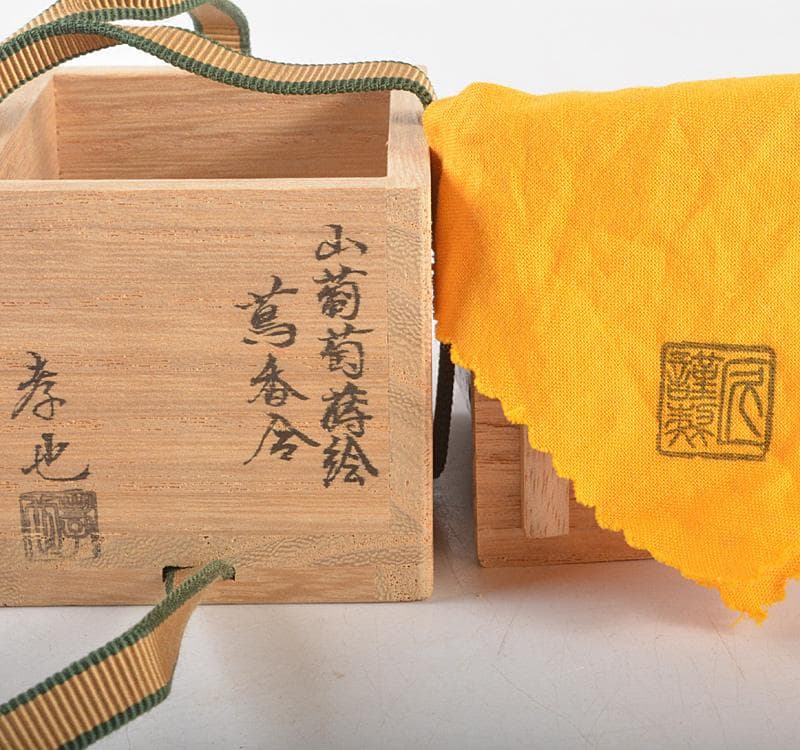 山葡萄蒔絵
蔦香合
孝也
謹製